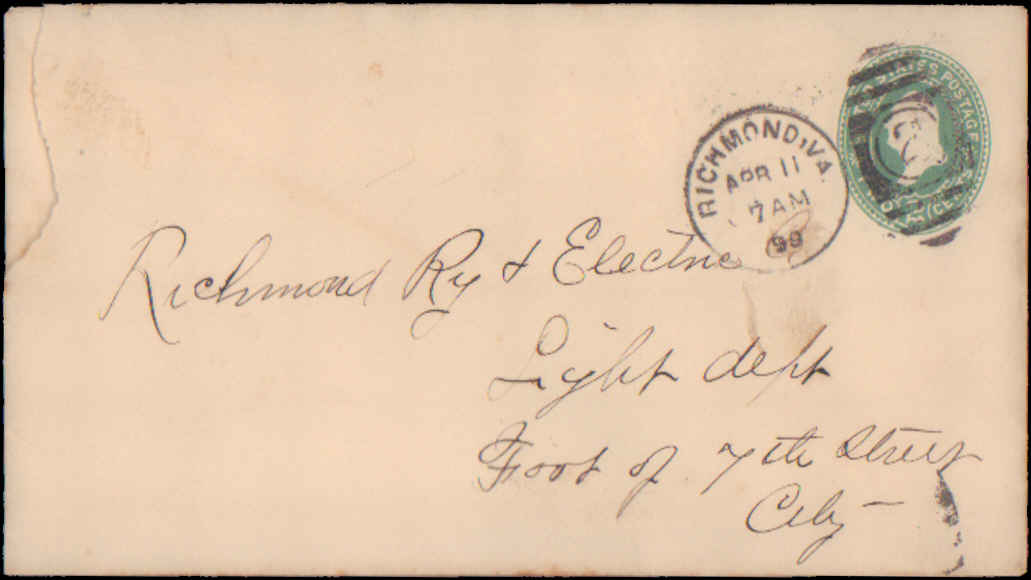 UNITED STATES POSTAGE
TWO CENTS
RICHMOND, VA.
APR 11
7 AM
99
2
Richmond Ry & Electric
Light dept
Foot of 7th Street
City